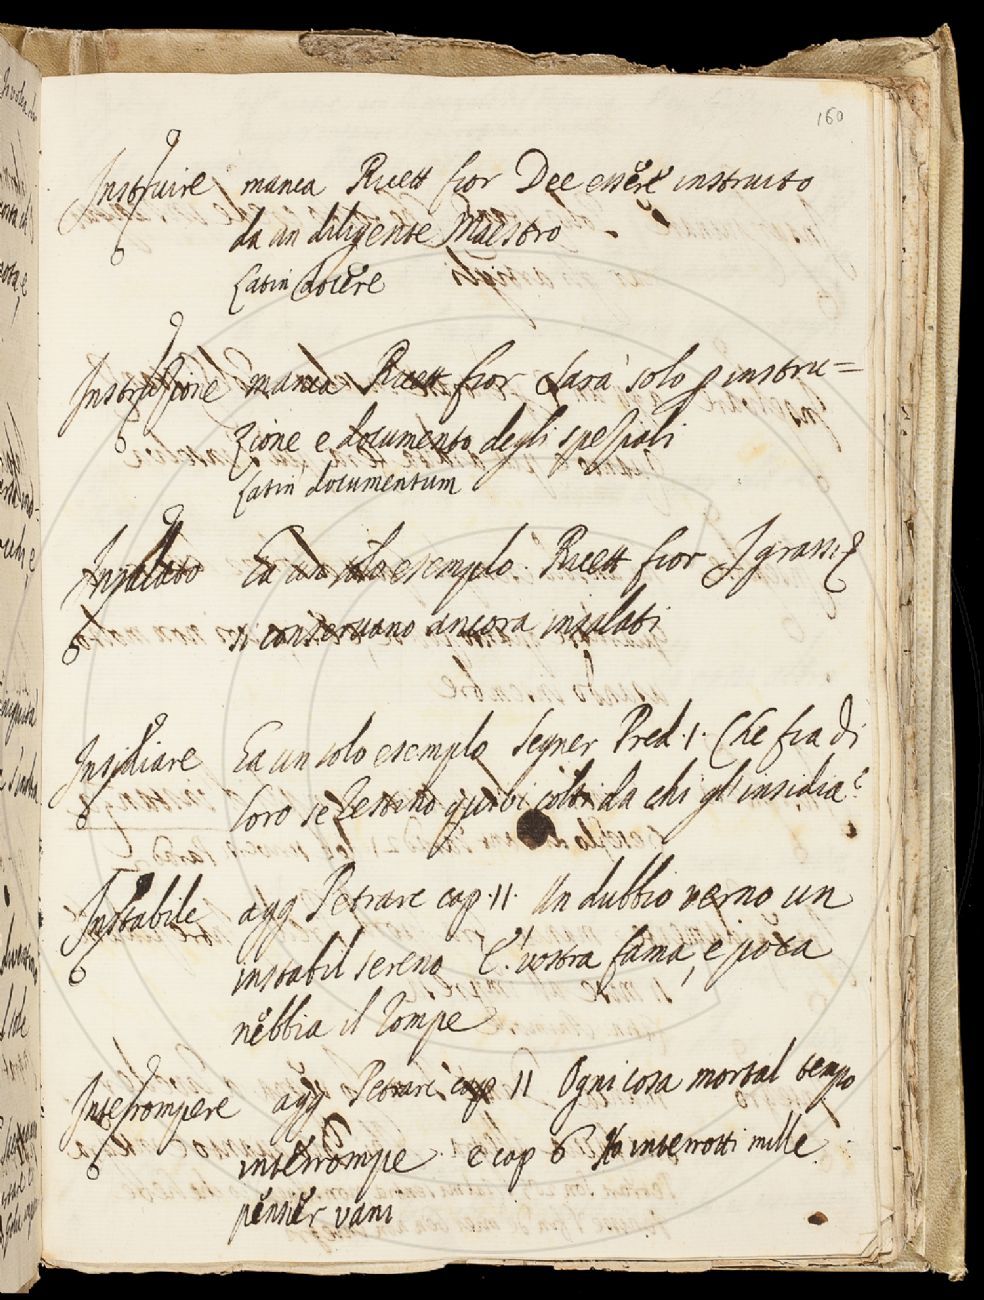 160
Instruire manca Ricett fior Dee essere instruito
da un diligente Maestro
Latin docere
Instruzione manca Ricett fior Sarà solo p instru=
zione e documento degli speziali
Latin documentum
Insalato Ea un solo esempio. Ricett fior I grassi
si conservano ancora insalati
Insidiare Ea un solo esempio Segner Pred. 1. Che fia di
loro se restino quivi colti da chi gl'insidia?
Instabile agg Petrarc cap. 11. Un dubbio verno un
instabil sereno E' vostra fama, e poca
nebbia il rompe
Interrompere agg Petrarc cap 11 Ogni cosa mortal tempo
interrompe e cap 6 Ho interrotti mille
pensier vani